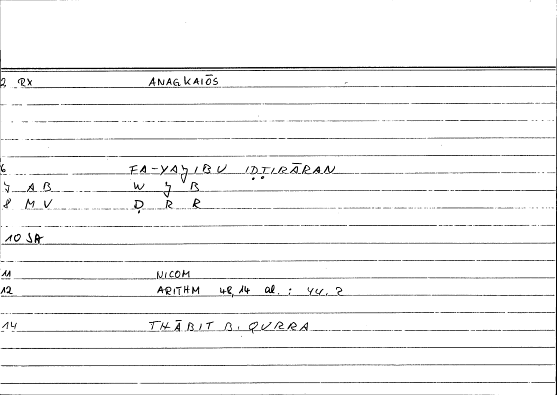 2 RX ANAGKAIŌS
6 FA-YAȷIBU IḌṬIRĀRAN
7 A B W ȷ B
8 M V Ḍ R R
10 JA
11 NICOM
12 ARITHM 48,14 al. : 44.2
14 THĀBIT B. QURRA